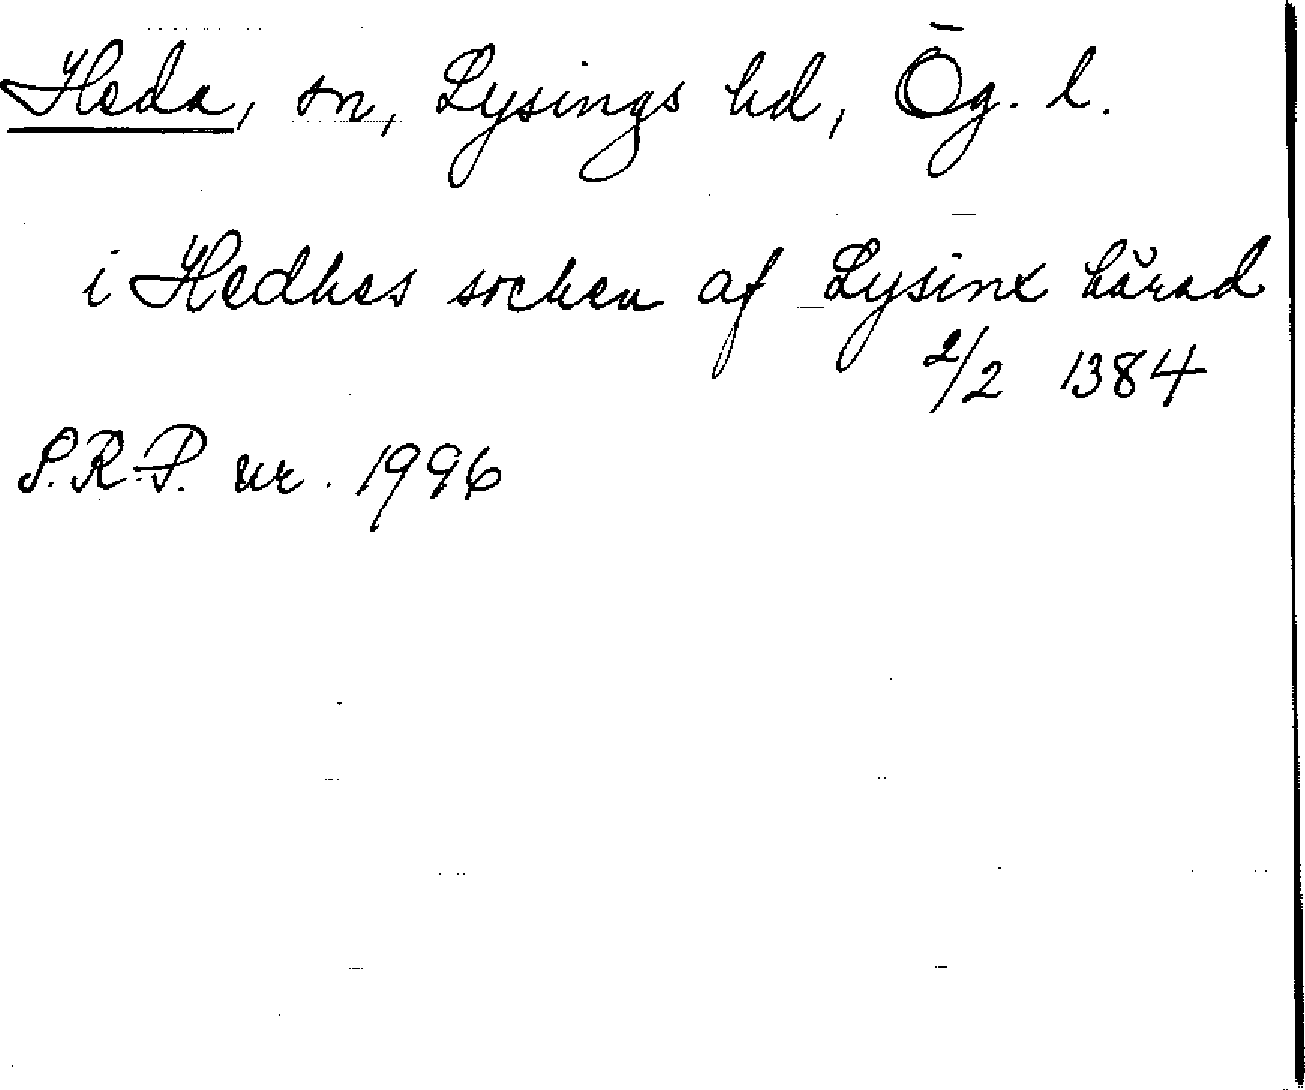 Heda, sn, Lysings hd, Ög. l.
i Hedhes sochen af Lysinx härad
2/2 1384
S.R.P. nr. 1996